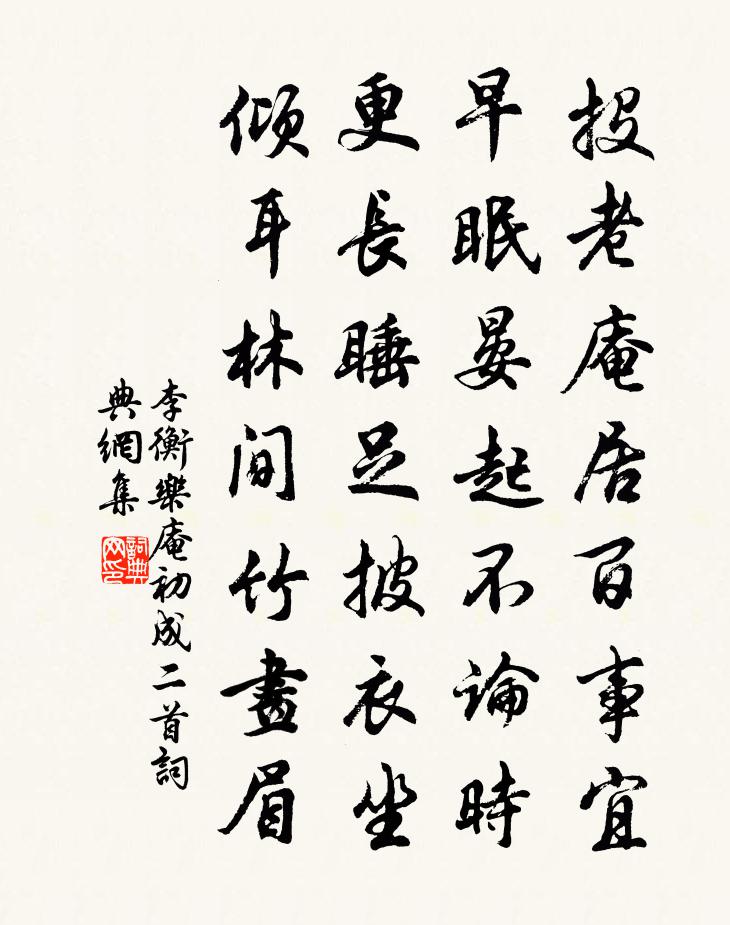 投老庵居百事宜
早眠晏起不論時
更長睡足披衣坐
倾耳林间竹畫眉
李衡樂庵初成二首詞
典網集
詞典
网印